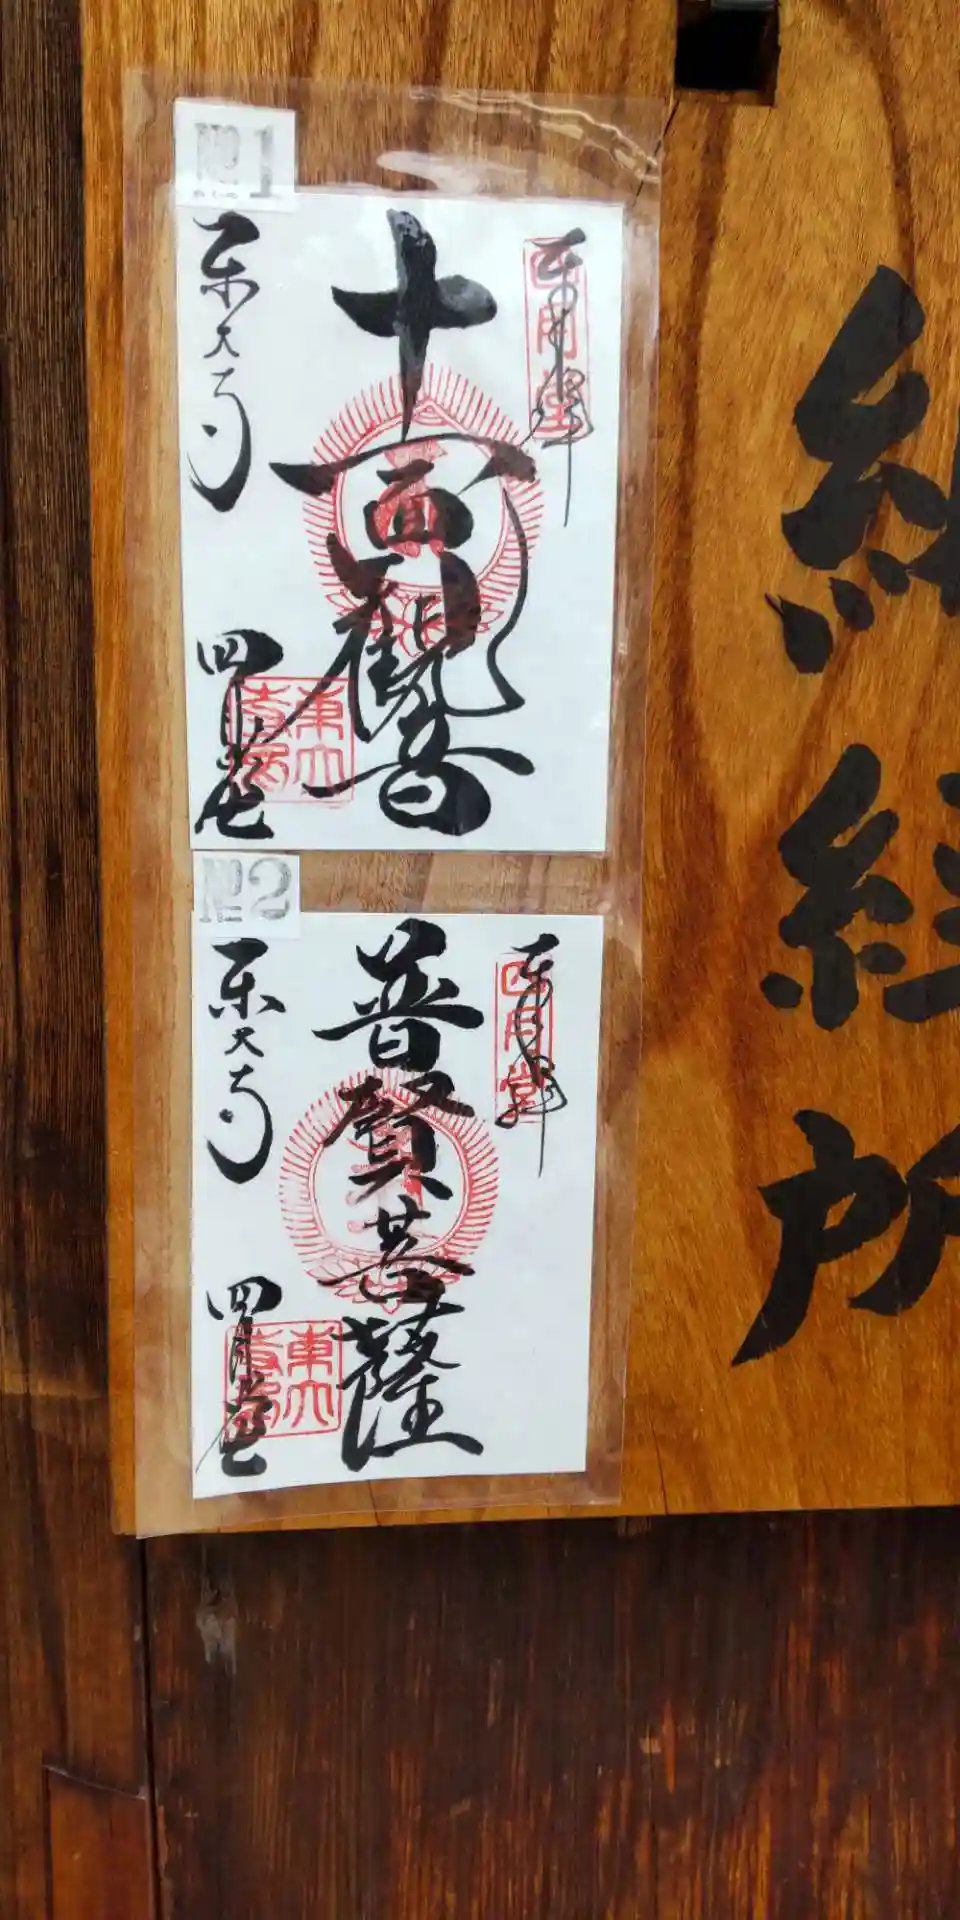 №1
奉拝
四月堂
十一面観音
東大寺
四月堂
東大寺
№2
奉拝
四月堂
普賢菩薩
東大寺
四月堂
東大寺
納経所